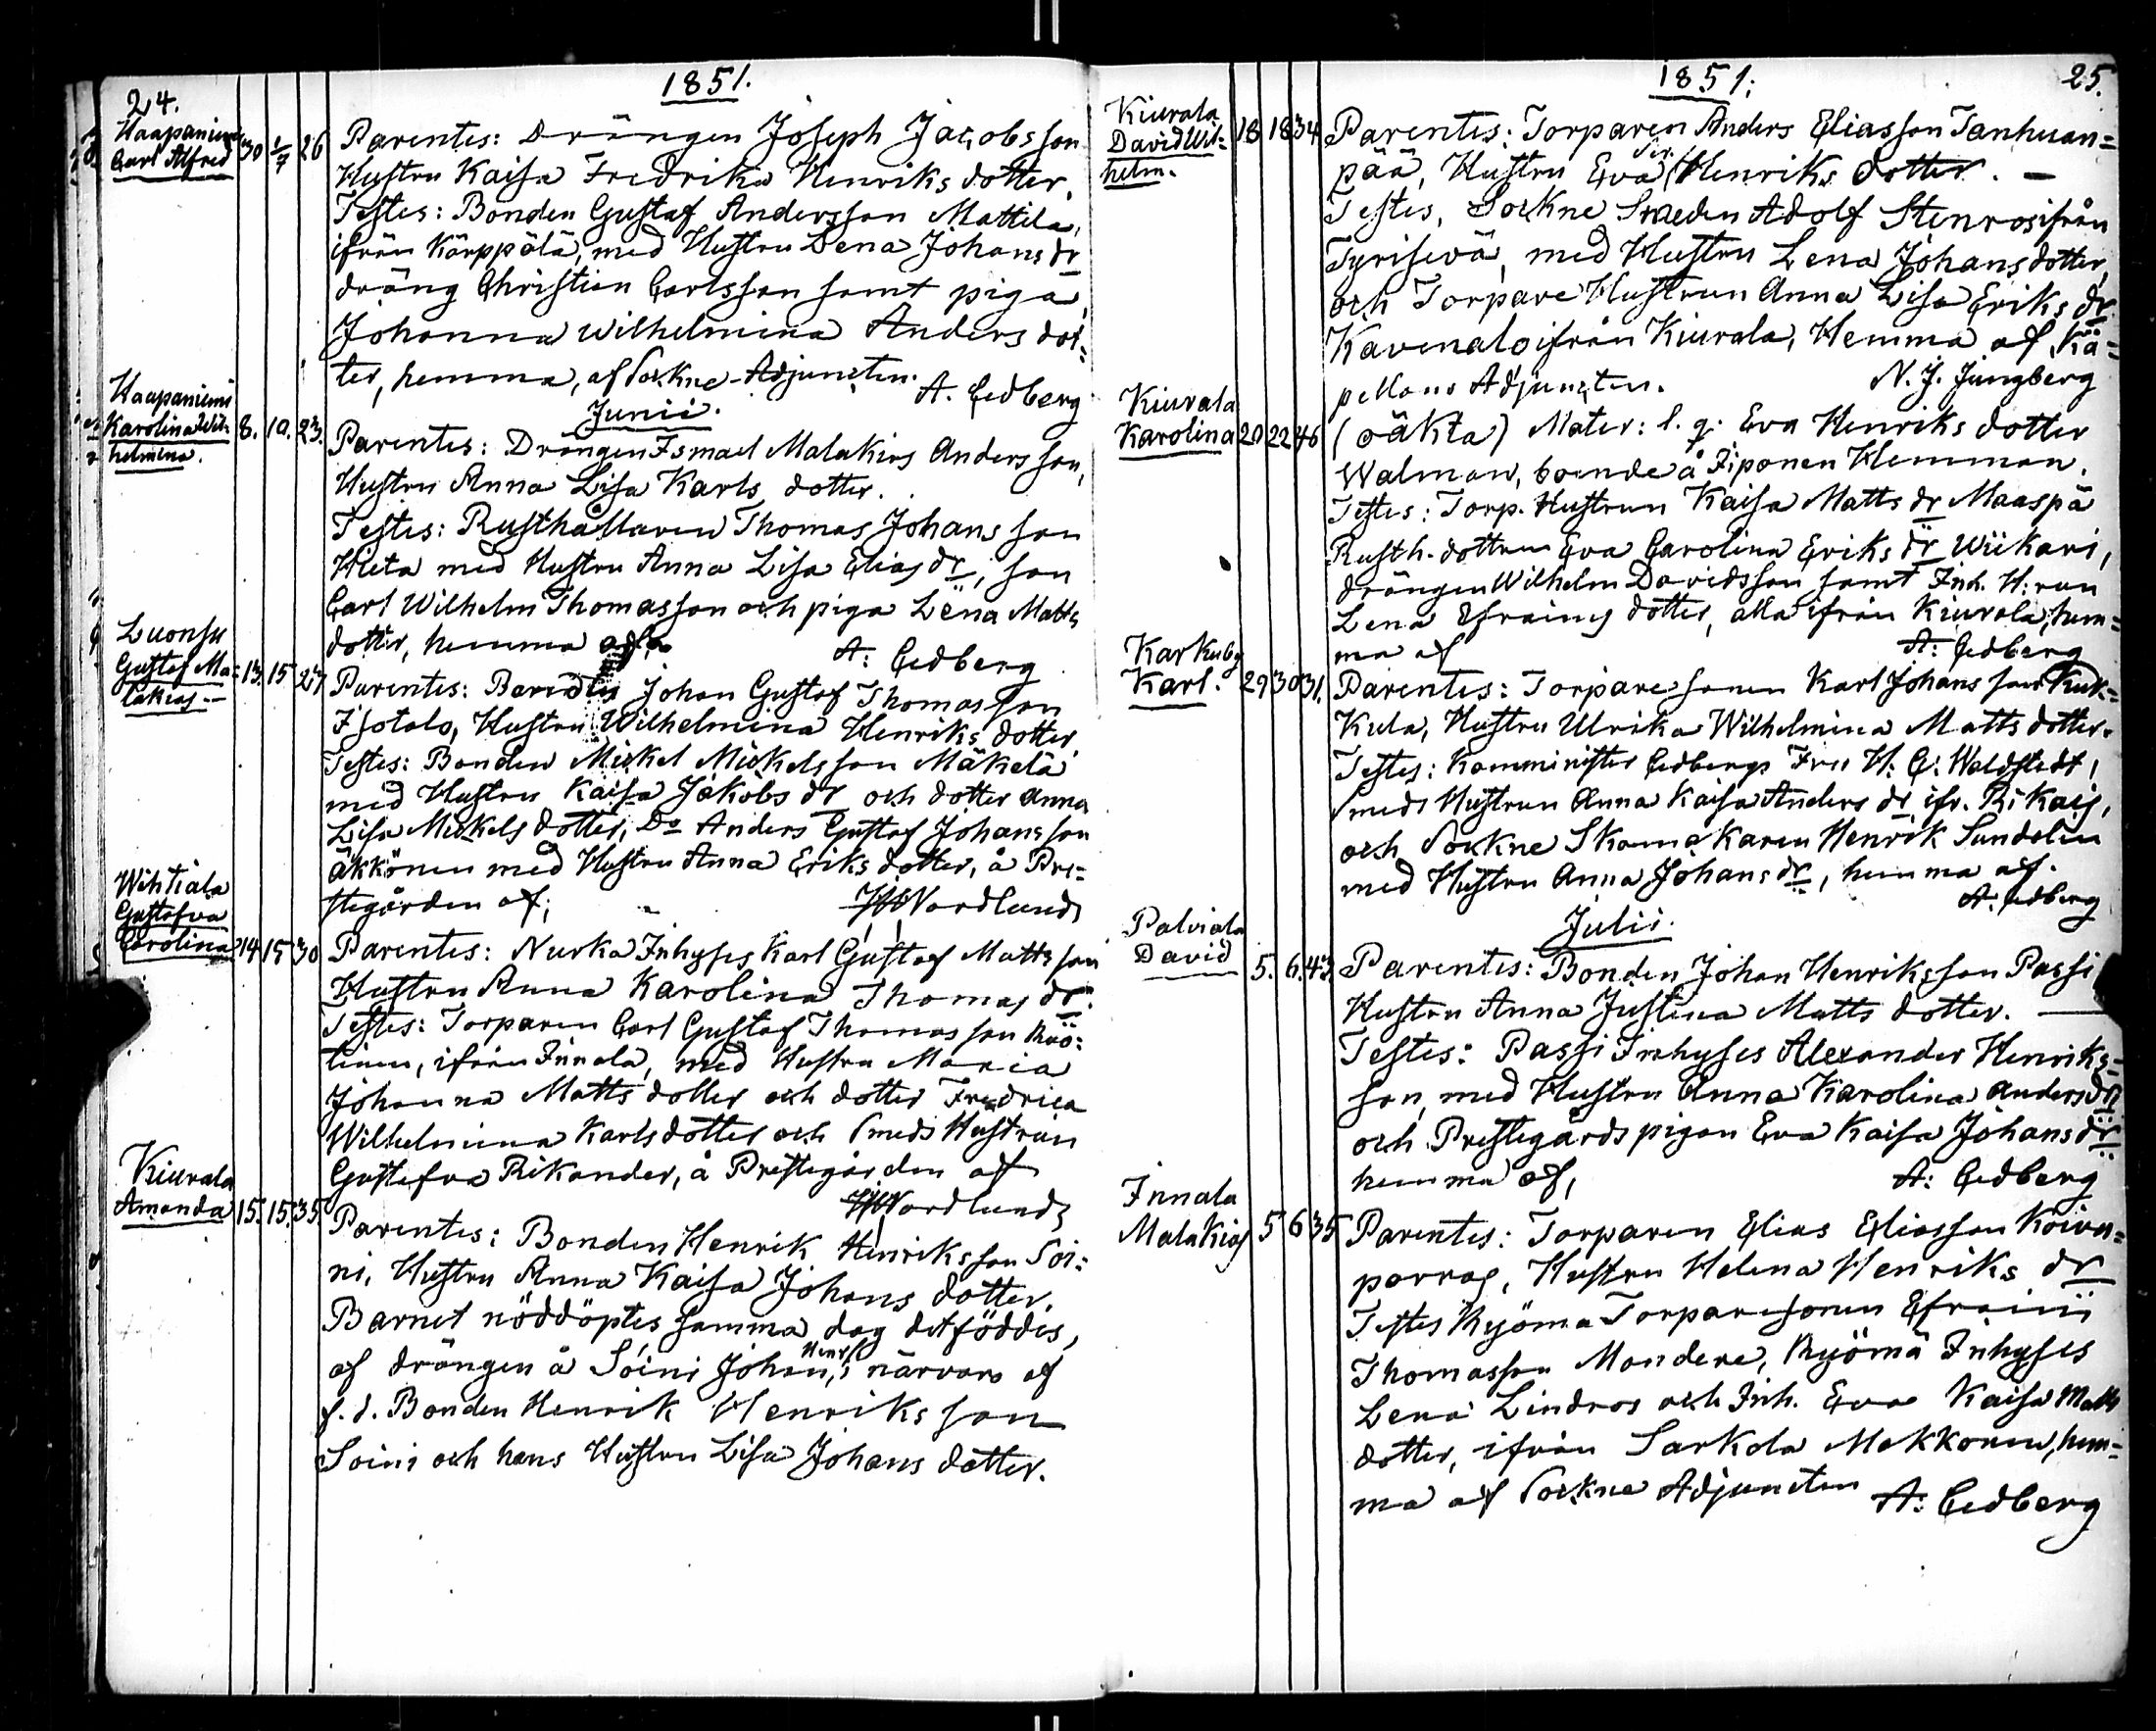 24.
1851.
Haapaniemi
Carl Alfred 30 1/7 26
Parentes: Drängen Joseph Jacobsson
Hustru Kaisa Fredrika Henriks dotter.
Testes: Bonden Gustaf Andersson Mattila,
ifrån Kärppälä, med Hustru Lena Johans dr
dräng Christian Carlsson samt piga
Johanna Wilhelmina Anders dot=
ter, hemma, af Sockne-Adjuncten. A. Cedberg
Junii.
Haapaniemi
Karolina Wil=
helmina. 8. 10. 23.
Parentes: Drängen Ismael Malakias Andersson,
Hustru Anna Lisa Karls dotter.
Testes: Rusthållaren Thomas Johansson
Hieta med Hustru Anna Lisa Elias dr, son
Carl Wilhelm Thomasson och piga Lena Matts
dotter, hemma af
A: Cedberg
Luonsu
Gustaf Ma=
lakias 13. 15 27
Parentes: Johan Gustaf Thomasson
Isotalo, Hustru Wilhelmina Henriks dotter.
Testes: Bonden Mickel Mickelsson Mäkelä
med Hustru Kaisa Jakobs dr och dotter Anna
Lisa Mickels dotter, Do Anders Gustaf Johansson
Äkkönen med Hustru Anna Eriks dotter, å Pre=
stegården af;
Nordlund
Wihtiala
Gustafva
Carolina 14 15 30
Parentes: Nurka Inhyses Karl Gustaf Mattsson
Hustru Anna Karolina Thomas dr.
Testes: Torparen Carl Gustaf Thomasson
ifrån Innala, med Hustru Maria
Johanna Matts dotter och dotter Fredrica
Wilhelmina Karlsdotter och Smeds Hustrun
Gustafva Rikander, å Prestegården af
Nordlund
Kiurala
Amanda 15. 15. 35.
Parentes: Bonden Henrik Henriksson Soi=
ni, Hustru Anna Kaisa Johans dotter.
Barnet nöddöptes samma dag det föddes,
af drängen å Soini Johan Henrss, i närvaro af
f.d. Bonden Henrik Henriksson
Soini och hans Hustru Lisa Johans dotter.
1851;
25.
Kiurala
David Wil=
helm. 18 18 34
Parentes: Torparen Anders Eliasson Tanhuan=
pää, Hustru Eva Henriks dotter. —
Testes, Sockne Smeden Adolf Stenros ifrån
Tyrisevä, med Hustru Lena Johans dotter,
och Torpare Hustrun Anna Lisa Eriks dr
Kavenalo ifrån Kiurala, Hemma af Ka=
pellans Adjuncten. N. J. Jungberg
Kiurala
Karolina 20 22 46
(oäkta) Mater: l. q: Eva Henriks dotter
Walman, boende å Iiponen Hemman.
Testes: Torp. Hustrun Kaisa Matts dr Maaspä
Rusth. dottren Eva Carolina Eriks dr Wiikari,
drängen Wilhelm Davidsson samt Inh. H:run
Lena Efraims dotter, alla ifrån Kiurala, hem=
ma af
A: Cedberg
Karkuby
Karl. 29 30 31.
Parentes: Torpare sonen Karl Johansson Kuk=
kula, Hustru Ulrika Wilhelmina Matts dotter.
Testes: Komminister Cedbergs Fru H: C: Waldstedt,
smeds Hustrun Anna Kaisa Anders dr ifr. Rikais,
och Sockne Skomakaren Henrik Sundelin
med Hustru Anna Johans dr, hemma af.
A: Cedberg
Julii.
Palviala
David 5. 6. 43.
Parentes: Bonden Johan Henriksson Passi
Hustru Anna Justina Matts dotter. —
Testes: Passi Inhyses Alexander Henriks=
son, med Hustru Anna Karolina Anders dr
och Prestegårds pigan Eva Kaisa Johans dr
hemma af,
A: Cedberg
Innala
Malakias 5 6 35
Parentes: Torparen Elias Eliasson Koivu=
porras, Hustru Helena Henriks dr
Testes Ryömä Torparesonen Efraim
Thomasson Mandere, Ryömä Inhyses
Lena Lindros och Inh. Eva Kaisa Matts
dotter, ifrån Sarkola Makkonen, hem=
ma af Sockne Adjuncten A: Cedberg